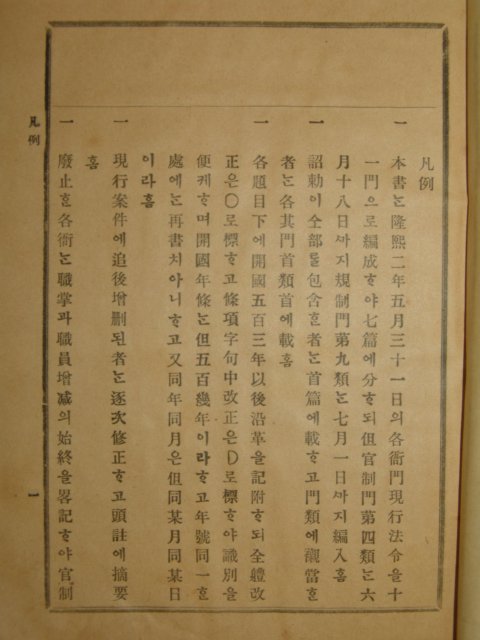 凡例
一 本書ᄂᆞᆫ隆熙二年五月三十一日의各衙門現行法令을十
一門으로編成ᄒᆞ야七篇에分ᄒᆞ되但官制門第四類ᄂᆞᆫ六
月十八日ᄭᆞ지規制門第九類ᄂᆞᆫ七月一日ᄭᆞ지編入홈
一 詔勅이全部ᄅᆞᆯ包含ᄒᆞᆫ者ᄂᆞᆫ首篇에載ᄒᆞ고門類에襯當ᄒᆞᆫ
者ᄂᆞᆫ各其門首類首에載홈
一 各題目下에開國五百三年以後沿革을記附ᄒᆞ되全軆改
正은〇로標ᄒᆞ고條項字句中改正은D로標ᄒᆞ야識別을
便케ᄒᆞ며開國年條ᄂᆞᆫ但五百幾年이라ᄒᆞ고年號同一ᄒᆞᆫ
處에ᄂᆞᆫ再書치아니ᄒᆞ고又同年同月은但同某月同某日
이라홈
一 現行案件에追後增刪된者ᄂᆞᆫ逐次修正ᄒᆞ고頭註에摘要
홈
一 廢止ᄒᆞᆫ各衙ᄂᆞᆫ職掌과職員增减의始終을畧記ᄒᆞ야官制
凡例
一